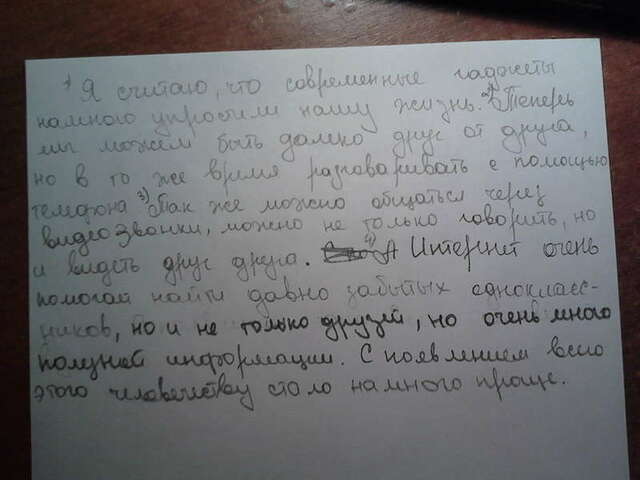 1) Я считаю, что современные гаджеты
намного упростили нашу жизнь. 2) Теперь
мы можем быть далеко друг от друга,
но в то же время разговаривать с помощью
телефона 3) Так же можно общаться через
видеозвонки, можно не только говорить, но
и видеть друг друга. 4) А Интернет очень
помогай найти давно забытых однокласс-
ников, но и не только друзей, но очень много
полезной информации. С появлением всего
этого человечеству стало намного проще.